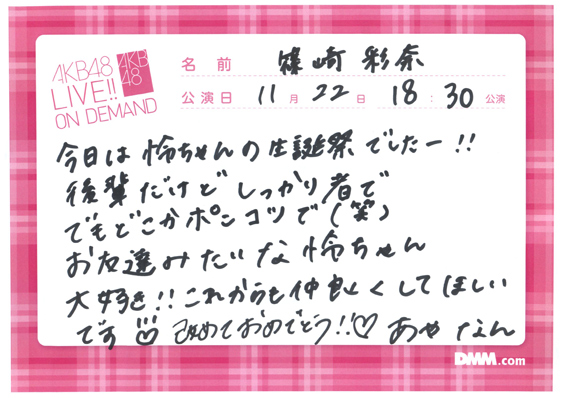 AKB48
LIVE!!
ON DEMAND
AKB
48
名前 篠崎彩奈
公演日 11月22日 18:30公演
今日は怜ちゃんの生誕祭でしたー!!
後輩だけどしっかり者で
でもどこかポンコツで(笑)
お友達みたいな怜ちゃん
大好き!!これからも仲良くしてほしい
です♡改めておめでとう!!♡ あやなん
DMM.com